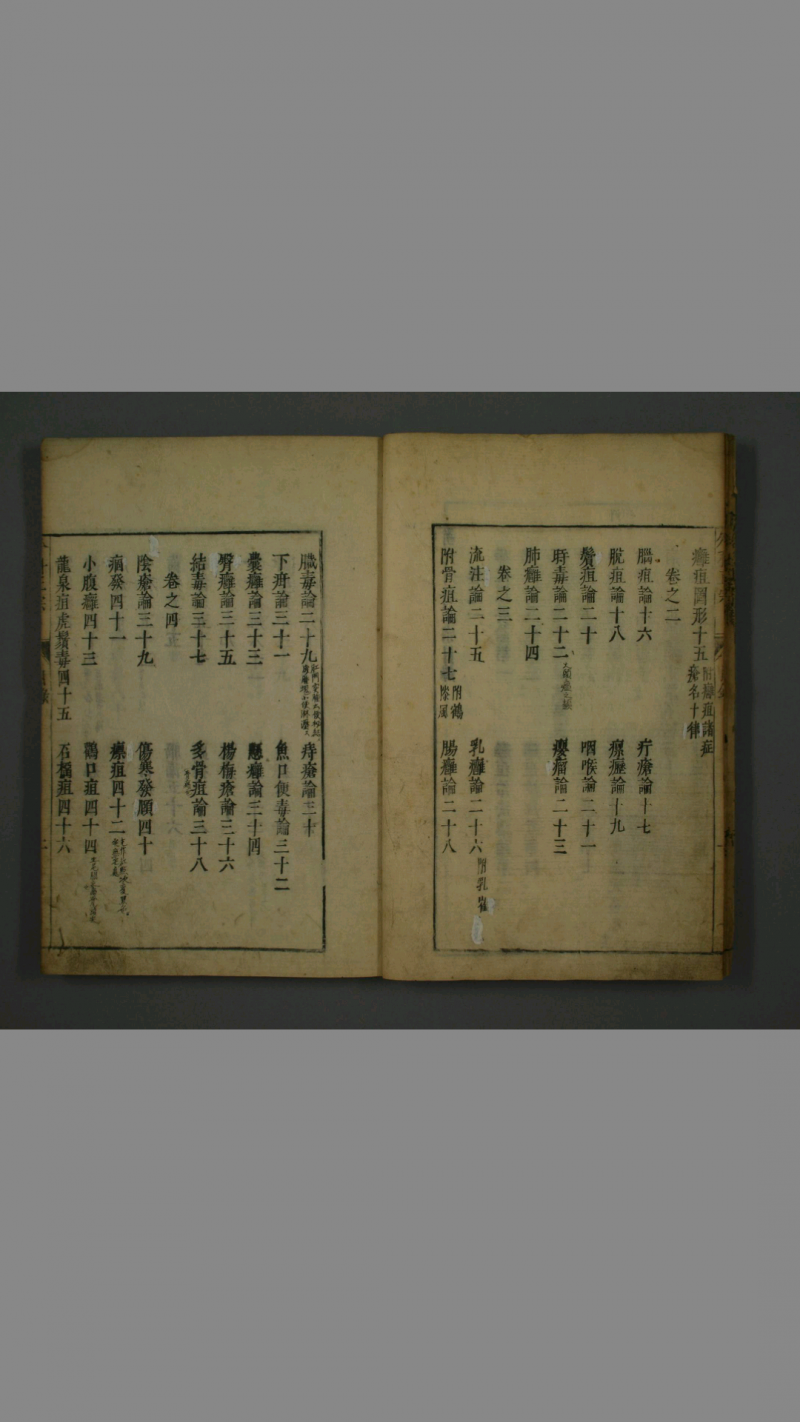 癰疽圖形十五 附癰疽諸症
瘡名十律
卷之二
腦疽論十六 疔瘡論十七
脫疽論十八 瘰癧論十九
鬢疽論二十 咽喉論二十一
時毒論二十二 癭瘤論二十三
肺癰論二十四
卷之三
流注論二十五 乳癰論二十六 附乳巖
附骨疽論二十七 附鶴膝風 腸癰論二十八
臟毒論二十九 痔瘡論三十
下疳論三十一 魚口便毒論三十二
囊癰論三十三 懸癰論三十四
臀癰論三十五 楊梅瘡論三十六
結毒論三十七 多骨疽論三十八
卷之四
陰瘡論三十九 傷寒發頤四十
痼發四十一 瘭疽四十二
小腹癰四十三 鸛口疽四十四
龍泉疽虎鬚毒四十五 石榴疽四十六